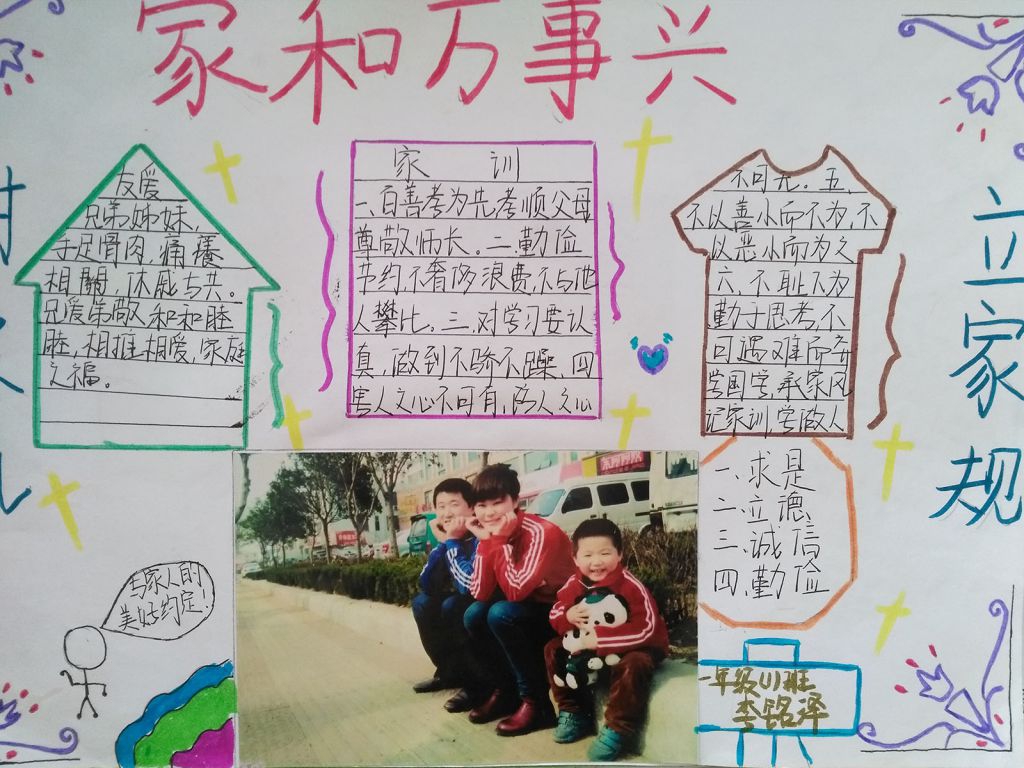 家和万事兴
友爱
兄弟姊妹,
手足骨肉,痛癢
相關,休戚与共。
兄爱弟敬,和和睦
睦,相推相爱,家庭
之福。
家 训
一、百善孝为先孝顺父母
尊敬师长。二.勤俭
节约,不奢侈浪费,不与他
人攀比。三.对学习要认
真,做到不骄不躁。四
害人之心不可有,防人之心
不可无。五、
不以善小而不为,不
以恶小而为之
六、不耻不为
勤于思考,不
可遇难而弃
学国学,承家风
记家训,学做人
立家规
一、求是
二、立德
三、诚信
四、勤俭
与家人的
美好约定!
一年级(1)班
李铭泽